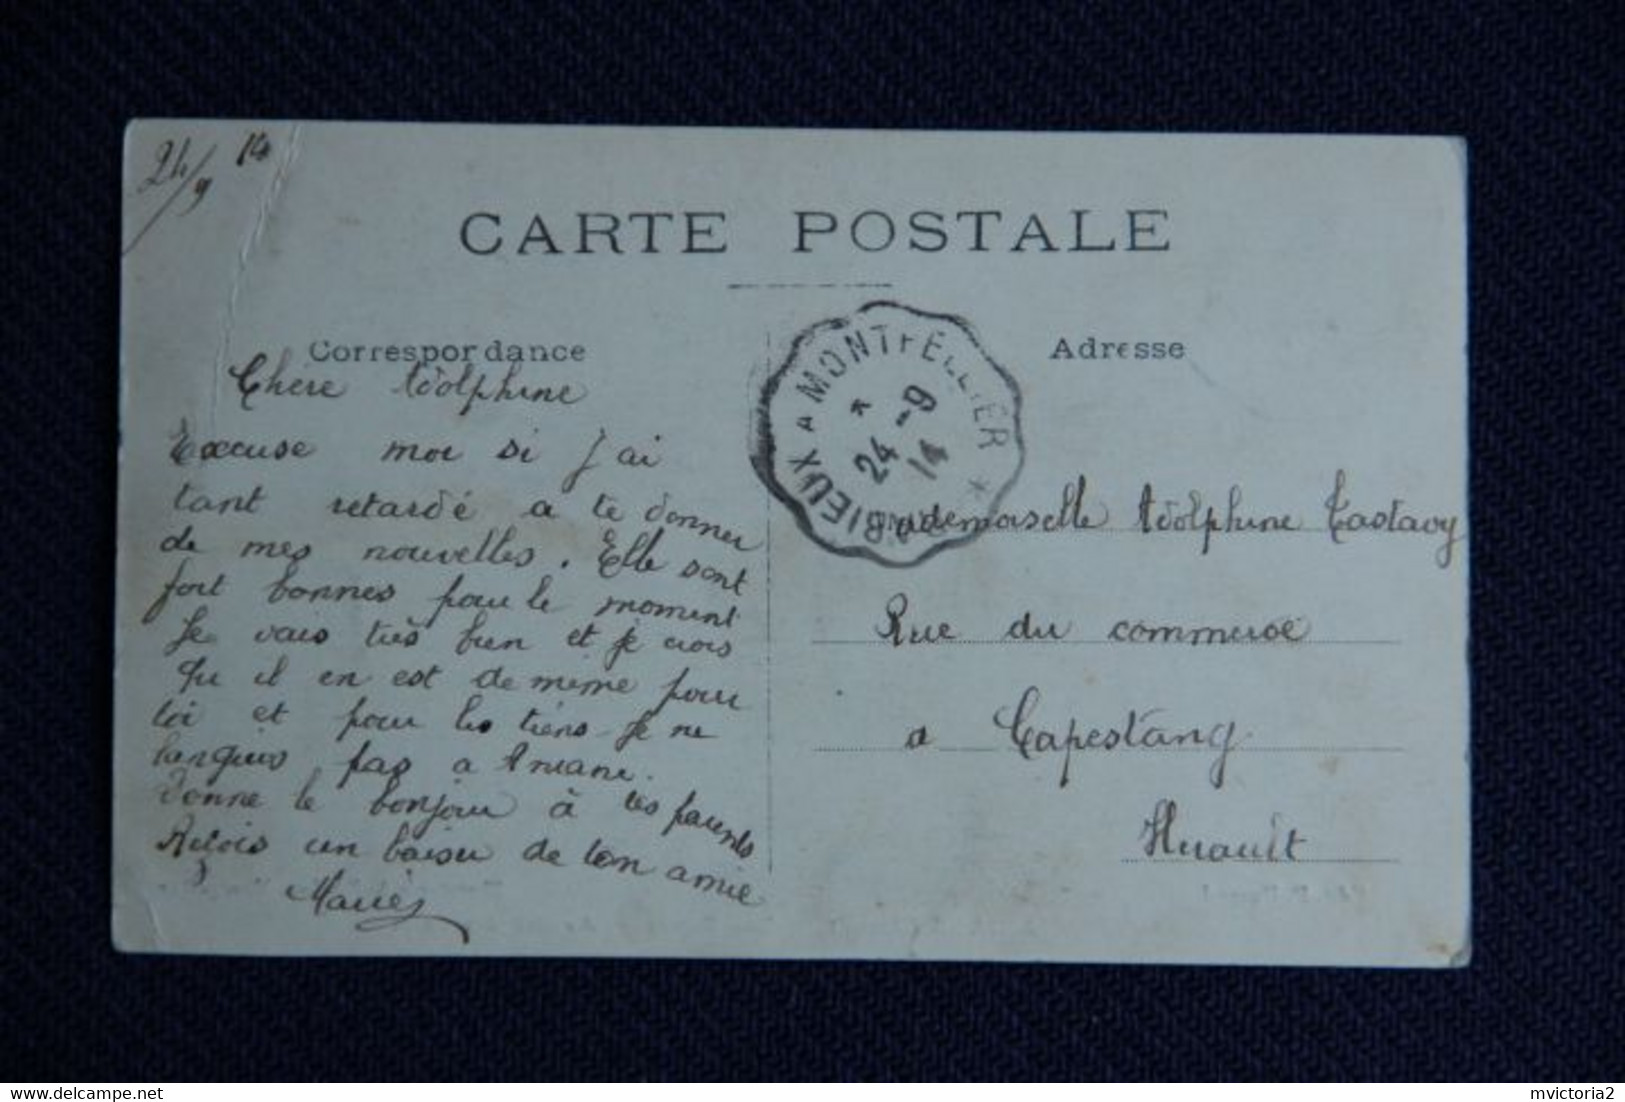 24/9 14
CARTE POSTALE
Correspondance
Adresse
RABIEUX A MONTPELLIER
24 -9
14
Chère Adolphine
Excuse moi si j'ai
tant retardé a te donner
de mes nouvelles. Elle sont
fort bonnes pour le moment
Je vais très bien et je crois
qu il en est de même pour
toi et pour les tiens je ne
languis pas a Aniane.
Donne le bonjour à tes parents
Reçois un baiser de ton amie
Mademoiselle Adolphine Castavy
Rue du commerce
a Capestang
Hérault
delcampe.net
mvictoria2